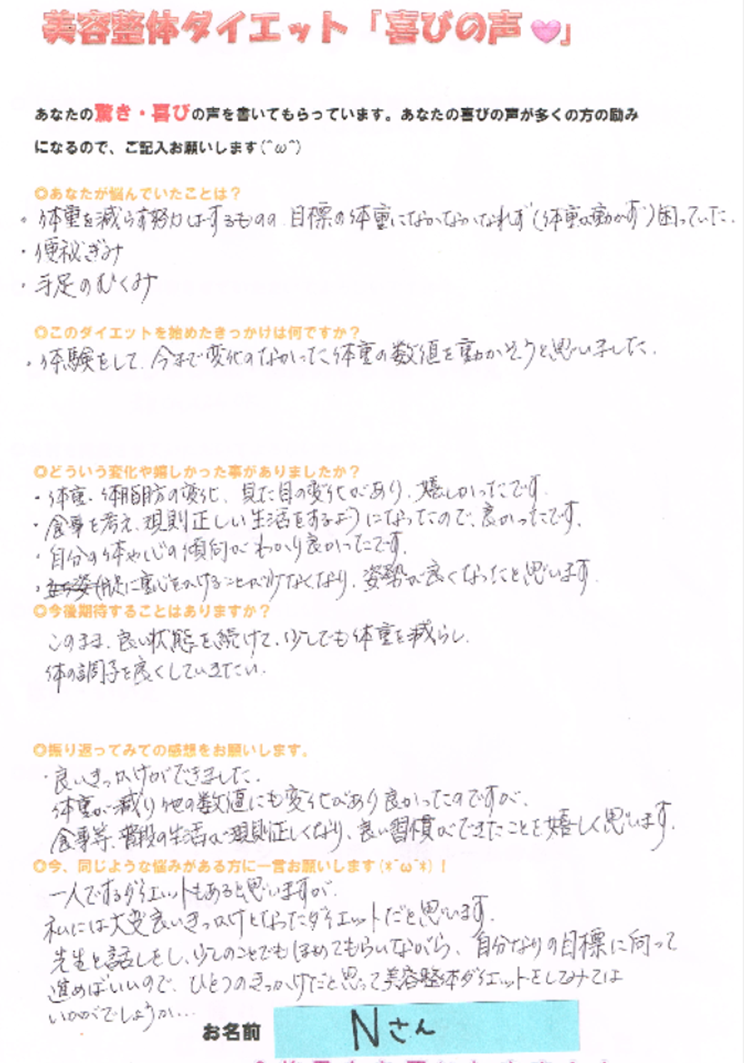 美容整体ダイエット「喜びの声💗」
あなたの驚き・喜びの声を書いてもらっています。あなたの喜びの声が多くの方の励み
になるので、ご記入お願いします(^ω^)
◎あなたが悩んでいたことは?
・体重を減らす努力はするものの、目標の体重になかなかなれず(体重が動かず)困っていた。
・便秘ぎみ
・手足のむくみ
◎このダイエットを始めたきっかけは何ですか?
・体験をして、今まで変化のなかった体重の数値を動かそうと思いました。
◎どういう変化や嬉しかった事がありましたか?
・体重、体脂肪の変化、見た目の変化があり、嬉しかったです。
・食事を考え、規則正しい生活をするようになったので、良かったです。
・自分の体や心の傾向がわかり良かったです。
・片足に重心をかけることが少なくなり、姿勢が良くなったと思います。
◎今後期待することはありますか?
このまま、良い状態を続けて、少しでも体重を減らし、
体の調子を良くしていきたい。
◎振り返ってみての感想をお願いします。
・良いきっかけができました。
体重が減り他の数値にも変化があり良かったのですが、
食事等、普段の生活が規則正しくなり、良い習慣ができたことを嬉しく思います。
◎今、同じような悩みがある方に一言お願いします(*^ω^*)!
一人でするダイエットもあると思いますが、
私には大変良いきっかけとなったダイエットだと思います。
先生と話しをし、少しのことでもほめてもらいながら、自分なりの目標に向って
進めばいいので、ひとつのきっかけだと思って美容整体ダイエットをしてみては
いかがでしょうか…
お名前 Nさん